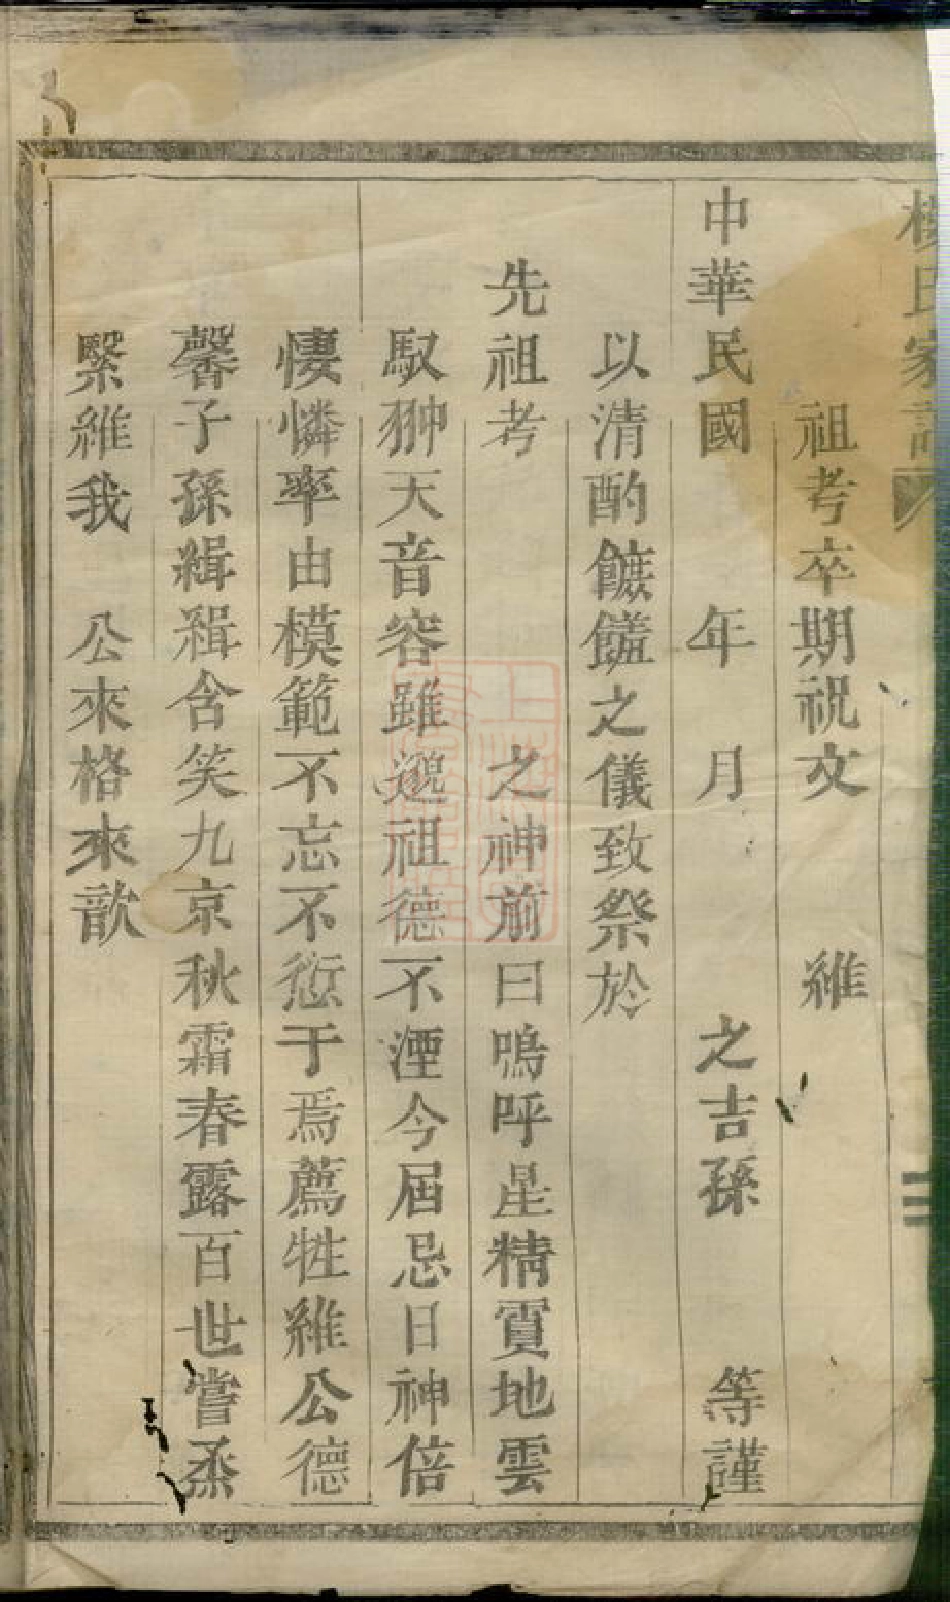 楊氏家譜
祖考卒期祝文　維
中華民國　年　月　之吉孫　等謹
以清酌饌饈之儀致祭於
先祖考　之神前曰嗚呼星精實地雲
馭翀天音容雖邈祖德不湮今屆忌日神倍
悽憐率由模範不忘不愆于焉薦牲維公德
馨子孫緝緝含笑九京秋霜春露百世嘗烝
緊維我　公來格來歆